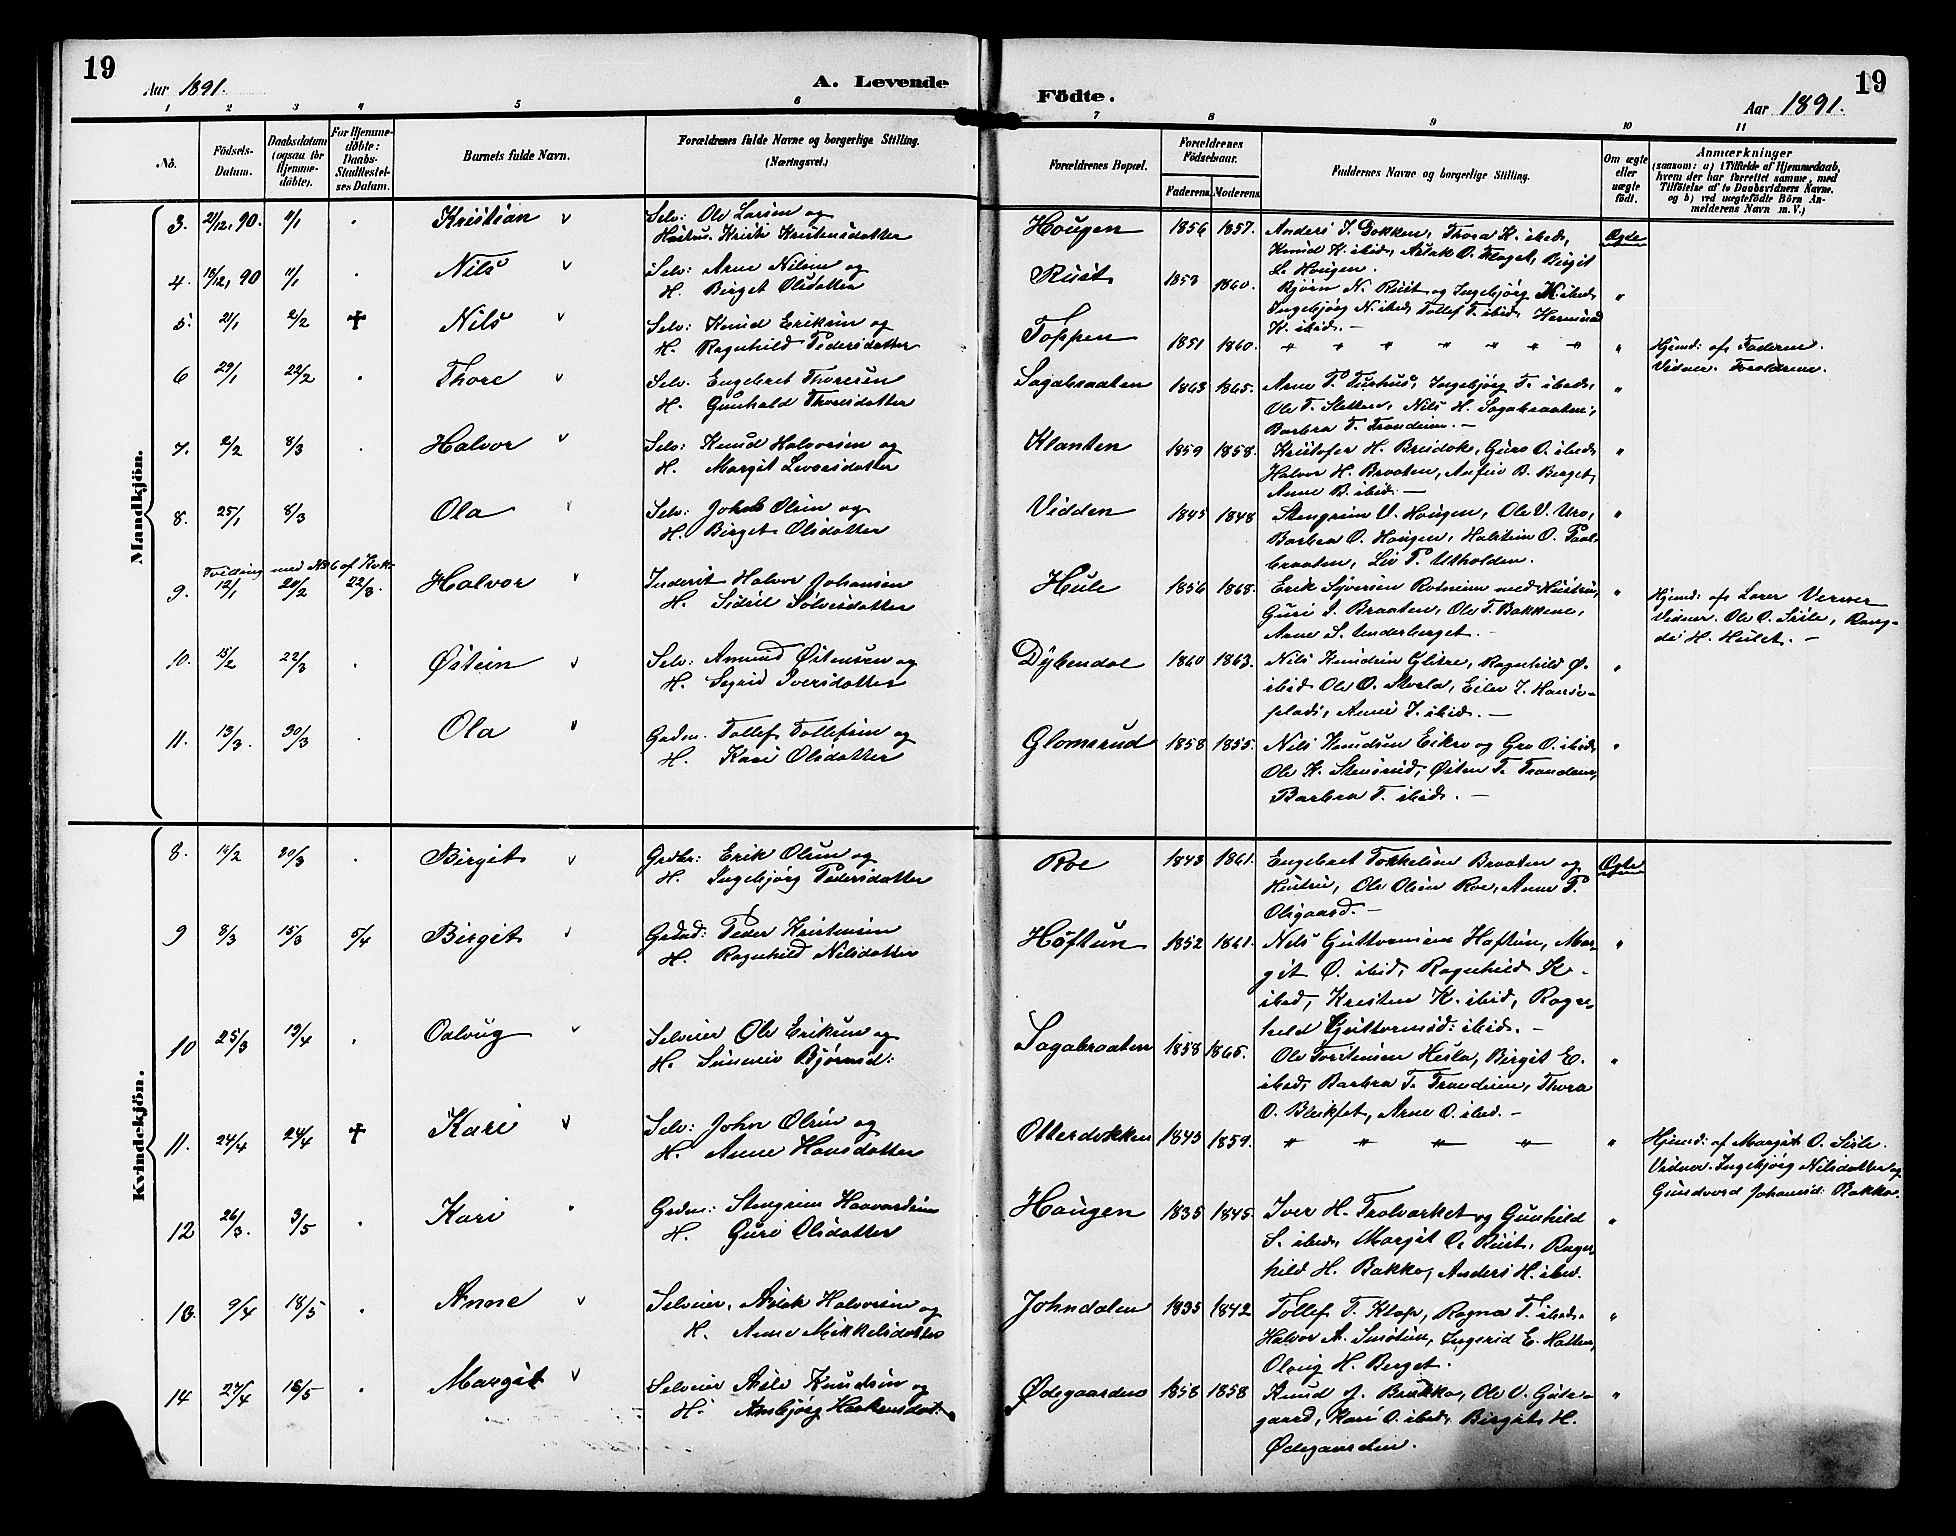 19
Aar 1891.
A. Levende
Födte.
Aar 1891.
19
1 2 3 4 5 6 7 8 9 10 11
No.
Födsels-Datum.
Daabsdatum (ogsaa for Hjemmedöbte).
For Hjemmedöbte: Daabs-Stadfæstelses Datum.
Barnets fulde Navn.
Forældrenes fulde Navne og borgerlige Stilling. (Næringsvei.)
Forældrenes Bopæl.
Forældrenes Födselsaar.
Faderens Moderens
Faddernes Navne og borgerlige Stilling.
Om ægte eller uægte födt.
Anmærkninger
(saasom: a) i Tilfælde af Hjemmedaab, hvem der har forrettet samme, med Tilföielse af to Daabsvidners Navne. og b) ved uægtefödte Börn Anmelderens Navn m. V.)
Mandkjön.
3. 21/12, 90. 1/1 Kristian
Selv: Ole Larsen og
Hustru Kristi Kristensdatter
Hougen 1856 1857.
Anders J. Bakken, Thora K. ibid,
Knud K. ibid, Aslak O. Flaget, Birgit
L. Hougen.
Ægte
4. 18/12, 90 11/1 Nils
Selv: Arne Nilsen og
H. Birget Olsdatter
Rust 1853 1860.
Bjørn N. Rust og Ingebjørg K. ibid,
Ingebjørg N. ibid, Tollef T. ibid, Hermund
K. ibid. —
"
5. 21/1 2/2 ✝ Nils
Selv: Knud Eriksen og
H. Ragnhild Pedersdatter
Toppen 1851 1860.
" " " " " " "
"
Hjemd: af Faderen.
Vidner. Forældrene.
6 29/1 22/2 Thore
Selv. Engebret Thoresen
H. Gunhild Thoresdatter
Sagabraaten 1863 1865.
Arne T. Tushus, Ingebjørg T. ibid,
Ole T. Sletten, Nils H. Sagabraaten,
Barbra T. Trondrun. —
"
7. 2/2 8/3 Halvor
Selv: Knud Halvorsen og
H. Margit Levorsdatter
Klanten 1859 1858.
Kristofer H. Breidok, Guro O. ibid,
Halvor H. Braaten, Anfin B. Berget,
Anne B. ibid: —
"
8. 25/1 8/3 Ola
Selv. John Olsen og
H. Birget Olsdatter
Vidden 1845 1848
Stengrim V. Hougen, Ole V. Uro,
Barbra O. Hougen, Halstein O. Paalbraaten,
Liv P. Utholden.
"
Tvilling med No 6 af Kvk.
9. 12/1 20/2 22/3. Halvor
Inderst Halvor Johansen
H. Sidsel Sølversdatter
Hule 1856 1868.
Erik Syversen Rotneim med Hustru,
Guri S. Braaten, Ole T. Bakkene,
Arne S. Underberget. —
"
Hjemd: af Lærer Verner
Vidner. Ole O. Sisle, Rangdi
H. Hulet. —
10. 15/2 22/3 Østein
Selv: Amund Østensen og
H. Sigrid Iversdatter
Dybendal 1860 1863.
Nils Knudsen Glitre, Ragnhild Ø.
ibid Ole O. Stvela, Eilev I. Hansesplads,
Anne I. ibid. —
"
11. 13/3. 30/3 Ola
Grdm. Tollef Tollefsen og
H. Kari Olsdatter
Glomsrud 1858 1855.
Nils Knudsen Eikro og Gro O. ibid,
Ole K. Stensrud, Østen T. Trondrun,
Barbra T. ibid. —
"
Kvindekjön.
8. 14/2 30/3 Birgit
Grdbr: Erik Olsen og
H. Ingebjørg Pedersdatter
Roe 1843 1861.
Engebret Torkelsen Braaten og
Hustru, Ole Olsen Roe, Anne P.
Olsgaard. —
Ægte
9 8/3 15/3 5/4 Birgit
Grdbd: Peder Kristensen
H. Ragnhild Nilsdatter
Høftun 1852 1861.
Nils Guttormsen Haftun, Margit
O. ibid, Ragnhild K.
ibid, Kristen K. ibid, Ragnhild
Guttormsd: ibid. —
"
10 25/3 19/4 Oalaug
Selveier Ole Eriksen og
H. Sunneiv Bjørnsd:
Sagabraaten 1858 1865.
Ole Torstensen Hesla, Birgit E.
ibid, Barbra T. Trondrun, Thora
O. Bleikset, Arne O. ibid. —
"
11. 24/4 24/4 ✝ Kari
Selv: John Olsen og
H. Anne Hansdatter
Otterdokken 1845 1859.
" " " "
"
Hjemd: af Margit O. Sisle.
Vidner. Ingebjørg Nilsdatter og
Gundvord Johansd: Bakko.
12 26/3. 3/5 Kari
Grdm: Stengrim Haavardsen
H. Guri Olsdatter
Haugen 1835 1845.
Iver H. Trolvarket og Gunhild
S. ibid, Margit O. Rust, Ragnhild
H. Bakko, Anders H. ibid.
"
13. 9/4 18/5 Anne
Selveier, Aslak Halvorsen og
H. Anne Mikkelsdatter
Johndalen 1835 1842
Tollef T. Klop, Ragna T. ibid,
Halvor A. Snøtun, Ingerid E. Hatten,
Olaug H. Berget.
"
14 27/4 18/5 Margit
Selveier Asle Knudsen og
H. Ambjørg Haakensdat.
Ødegaarden 1858 1858
Knud J. Bakko, Ole V. Gutegaard,
Kari O. ibid, Birgit H.
Ødegaarden.
"